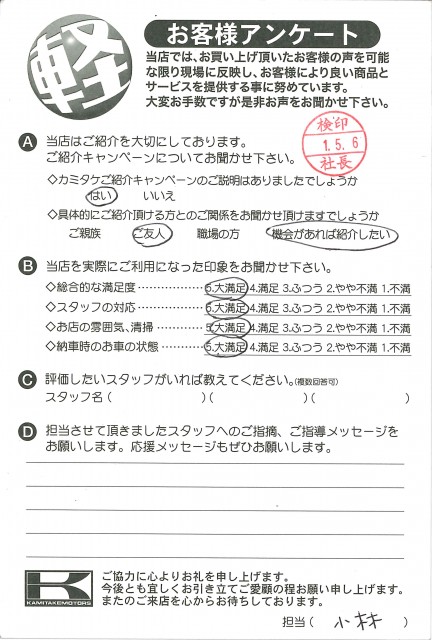 軽
お客様アンケート
当店では、お買い上げ頂いたお客様の声を可能
な限り現場に反映し、お客様により良い商品と
サービスを提供する事に努めています。
大変お手数ですが是非お声をお聞かせ下さい。
検印
1.5.6
社長
A 当店はご紹介を大切にしております。
ご紹介キャンペーンについてお聞かせ下さい。
◇カミタケご紹介キャンペーンのご説明はありましたでしょうか
はい いいえ
◇具体的にご紹介頂ける方とのご関係をお聞かせ頂けますでしょうか
ご親族 ご友人 職場の方 機会があれば紹介したい
B 当店を実際にご利用になった印象をお聞かせ下さい。
◇総合的な満足度……………5.大満足 4.満足 3.ふつう 2.やや不満 1.不満
◇スタッフの対応……………5.大満足 4.満足 3.ふつう 2.やや不満 1.不満
◇お店の雰囲気、清掃………5.大満足 4.満足 3.ふつう 2.やや不満 1.不満
◇納車時のお車の状態………5.大満足 4.満足 3.ふつう 2.やや不満 1.不満
C 評価したいスタッフがいれば教えてください。(複数回答可)
スタッフ名( )( )( )
D 担当させて頂きましたスタッフへのご指摘、ご指導メッセージを
お願いします。応援メッセージもぜひお願いします。
K
KAMITAKEMOTORS
ご協力に心よりお礼を申し上げます。
今後とも宜しくお引き立てご愛顧の程お願い申し上げます。
またのご来店を心からお待ちしております。
担当( 小林 )